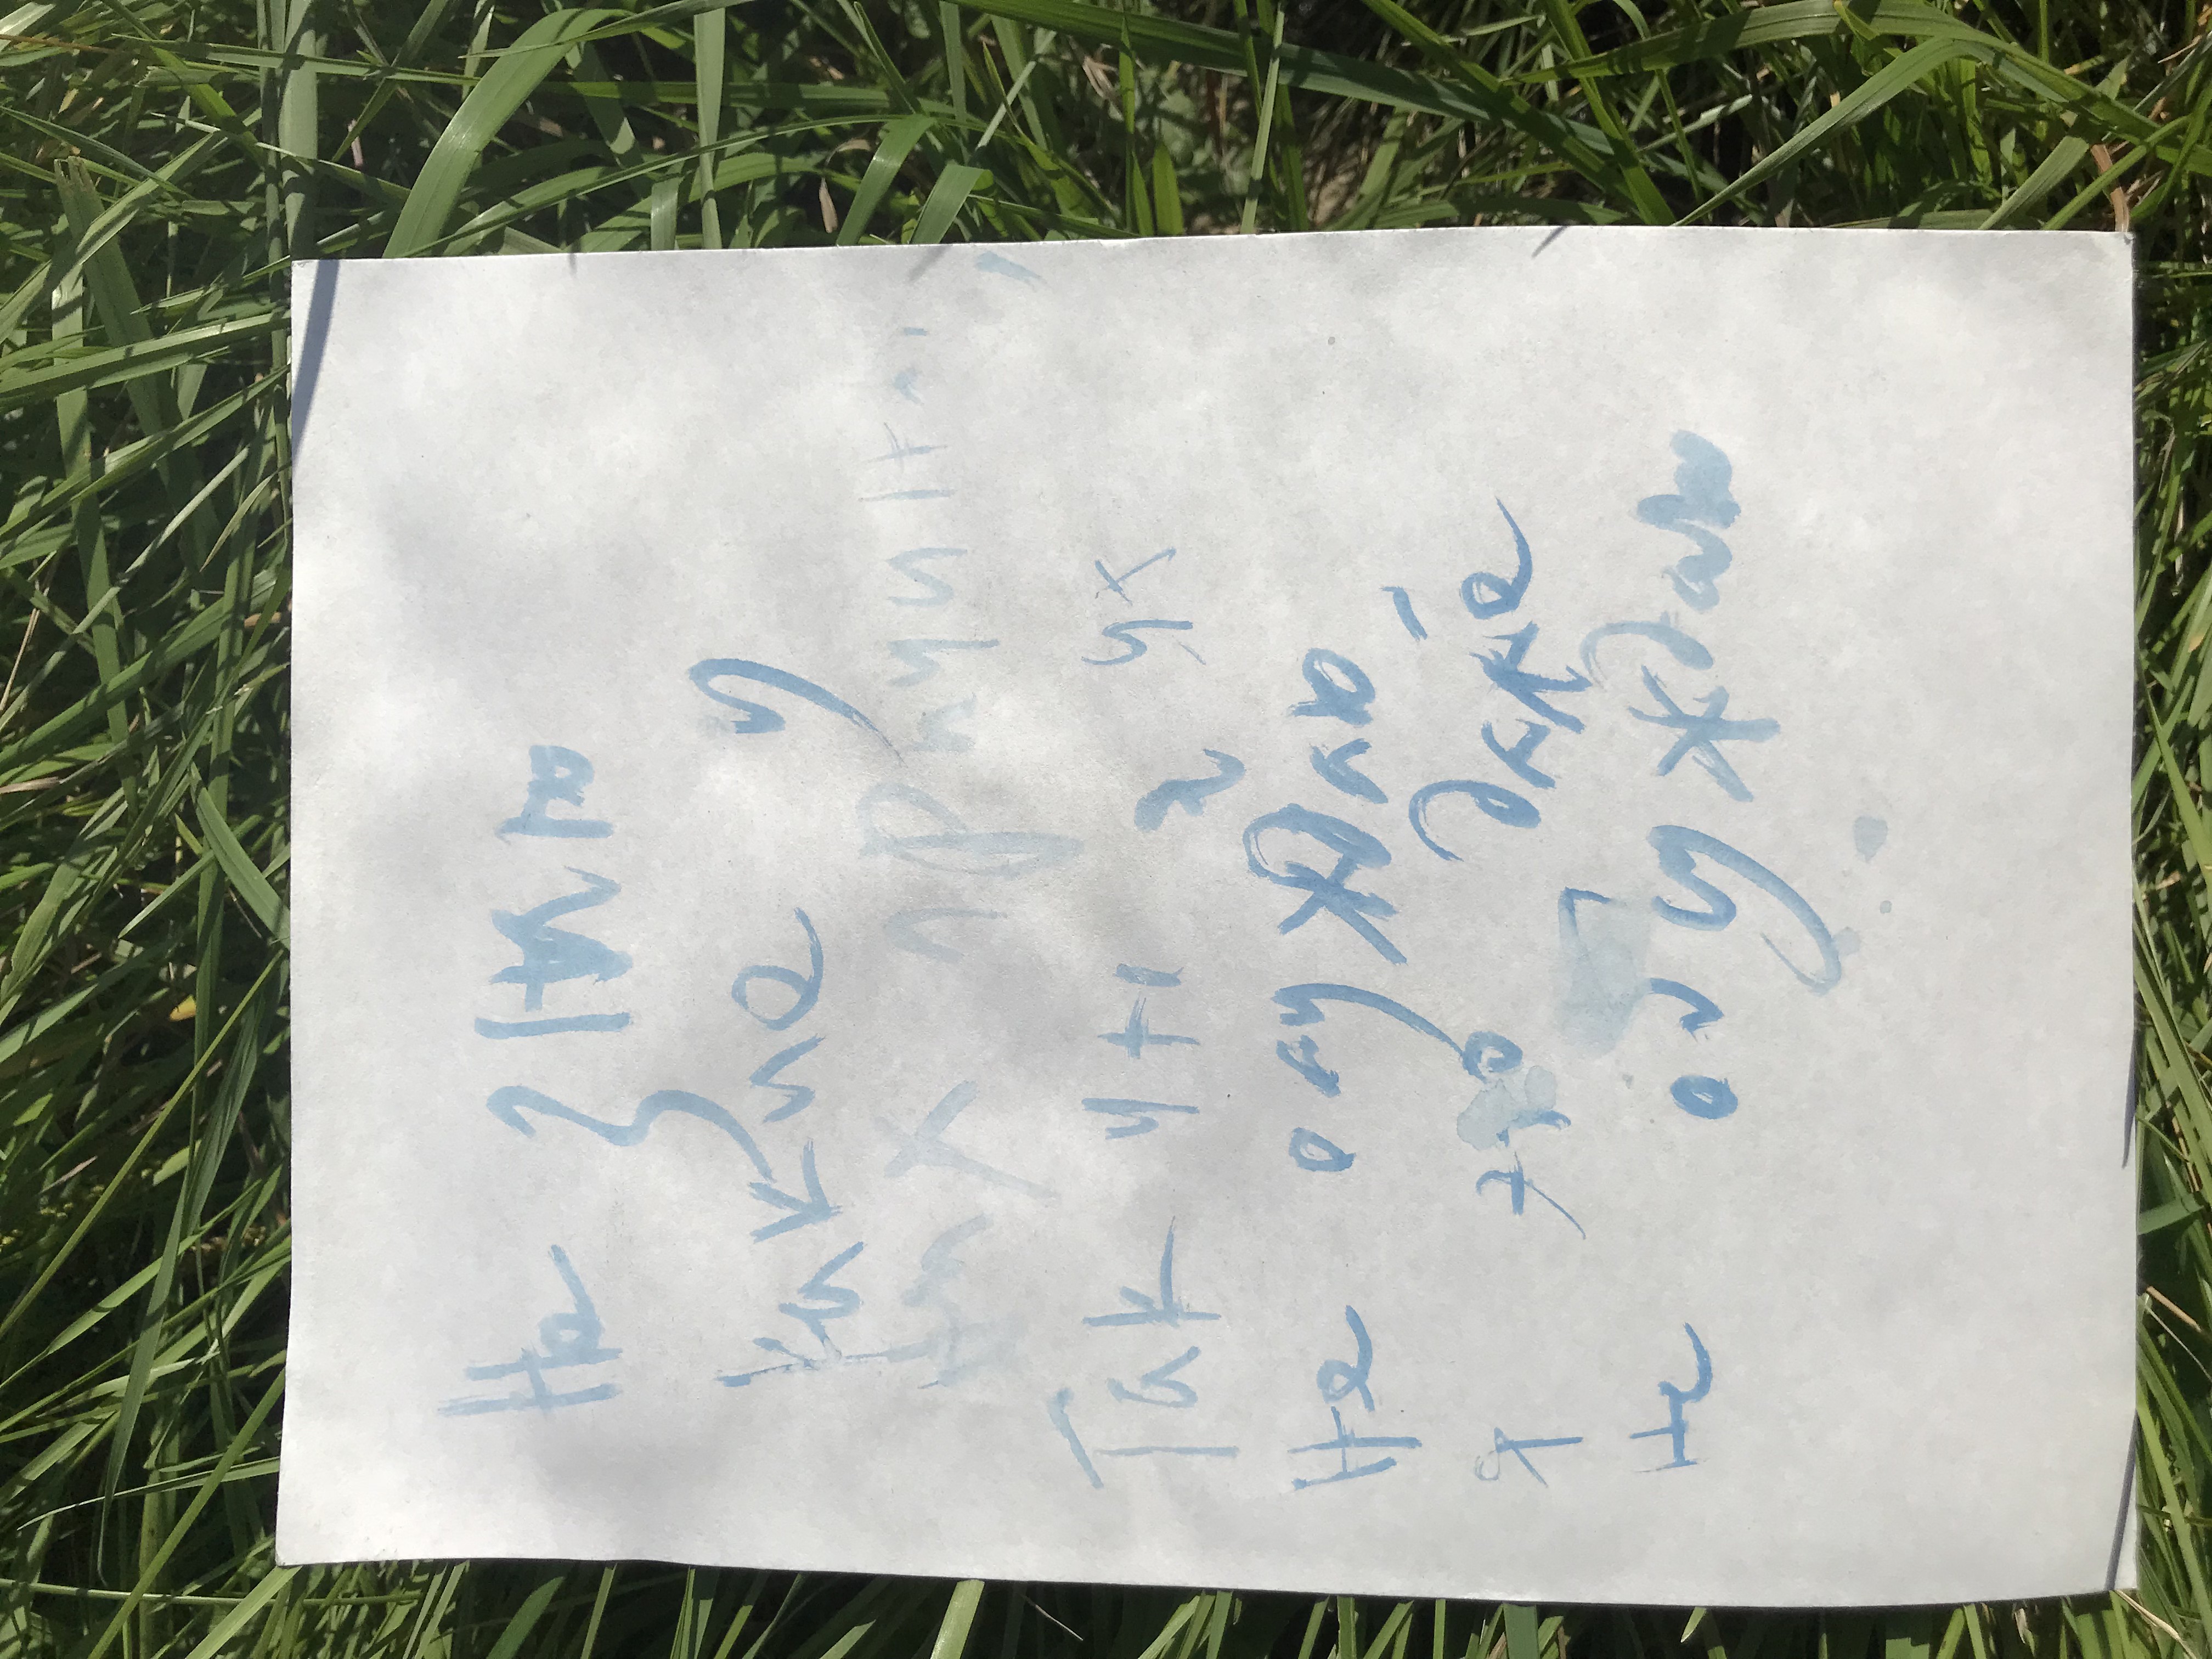 Не знаю
какие у
них причины,
Так что я их
Не осуждаю
Я это даже
Не обсуждаю